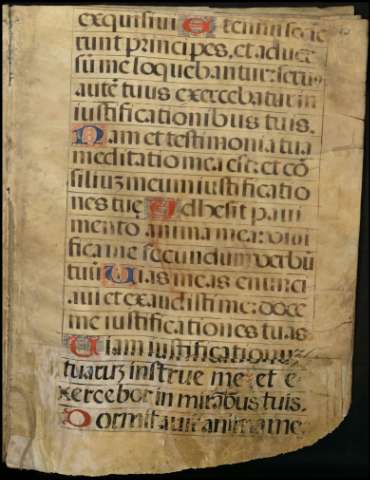 exquisiui Etenim sede
runt principes, et aduer
sū me loquebantur: seruꝰ
autē tuus exercebatur in
iustificationibus tuis.
Nam et testimonia tua
meditatio mea est: et cō
siliuȝ meum iustificatio
nes tuę Adhesit paui
mento anima mea: viui
fica me secundum verbū
tuū Uias meas enunci
aui et exaudisti me: doce
me iustificationes tuas
Uiam iustificationuȝ
tuaruȝ instrue me: et e
xercebor in mirabus tuis.
Dormitauit anima me